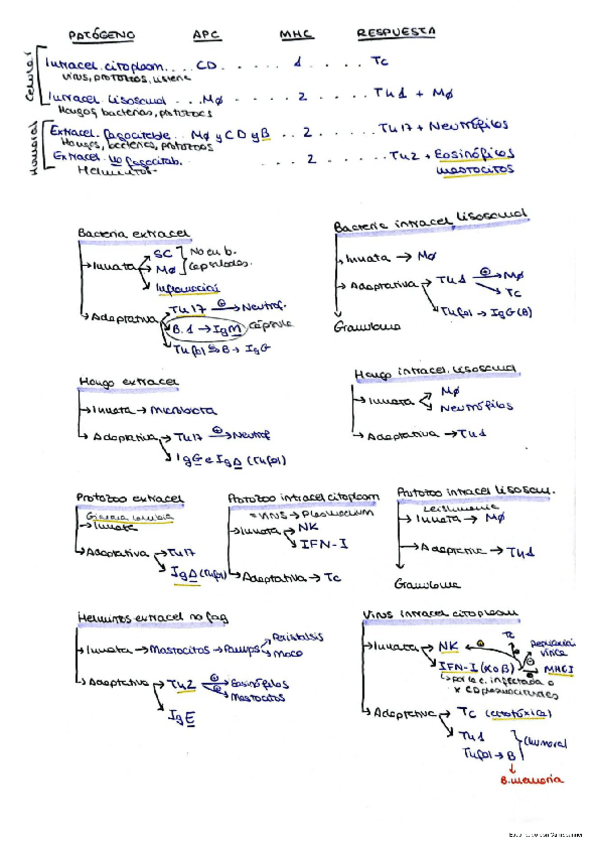 PATÓGENO APC MHC RESPUESTA
Celular
Intracel. citoplasm. . . CD . . . . . 1 . . . . . Tc
Virus, protozoos,
Intracel lisosomal . . . MØ . . . . . . 2 . . . . . TH1 + MØ
Hongos, bacterias, protozoos
Humoral
Extracel. fagocitable . . MØ y CD y B . . 2 . . . . TH17 + Neutrófilos
Hongos, bacterias, protozoos
Extracel. no fagocitab. . . . . . 2 . . . . TH2 + Eosinófilos
Helmintos. mastocitos
Bacteria extracel
→ Innata → SC
→ MØ
No en b. capsuladas.
→ Inflamación
→ Adaptativa → TH17 ⊕→ Neutróf.
→ B.1 → IgM cápsula
→ THfol → B → IgG
Bacteria intracel. lisosomal
→ Innata → MØ
→ Adaptativa → TH1 ⊕→ MØ
→ Tc
→ THfol → IgG (B)
Granuloma
Hongo extracel
→ Innata → Microbiota
→ Adaptativa → TH17 ⊕→ Neutróf
→ IgG e IgA (THfol)
Hongo intracel. lisosomal
→ Innata → MØ
→ Neutrófilos
→ Adaptativa → TH1
Protozoo extracel
Giardia lamblia
→ Innata
→ Adaptativa → TH17
→ IgA (THfol)
Protozoo intracel citoplasm
= VIRUS → Plasmodium
→ Innata → NK
→ IFN-I
→ Adaptativa → Tc
Protozoo intracel lisosom.
Leishmania
→ Innata → MØ
→ Adaptativa → TH1
Granuloma
Helmintos extracel no fag
→ Innata → Mastocitos → Pamps → Peristalsis
→ Moco
→ Adaptativa → TH2 ⊕→ Eosinófilos
⊕→ Mastocitos
→ IgE
Virus intracel citoplasm
→ Innata → NK
→ IFN-I (α o β) ⊕→ MHC I
Tc
vírica
→ por la c. infectada o
x CD plasmocitoides
→ Adaptativa → Tc (citotóxica)
→ TH1
THfol → B
Humoral
B. memoria